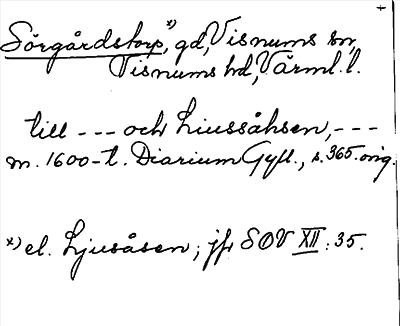 Sörgårdstorp,ˣ⁾ gd, Visnums sn,
Visnums hd, Värml. l.
till --- och Liussåhsen, ---
m. 1600-t. Diarium Gyll., s. 365. orig.
ˣ⁾ el. Ljusåsen; jfr SOV XII: 35.